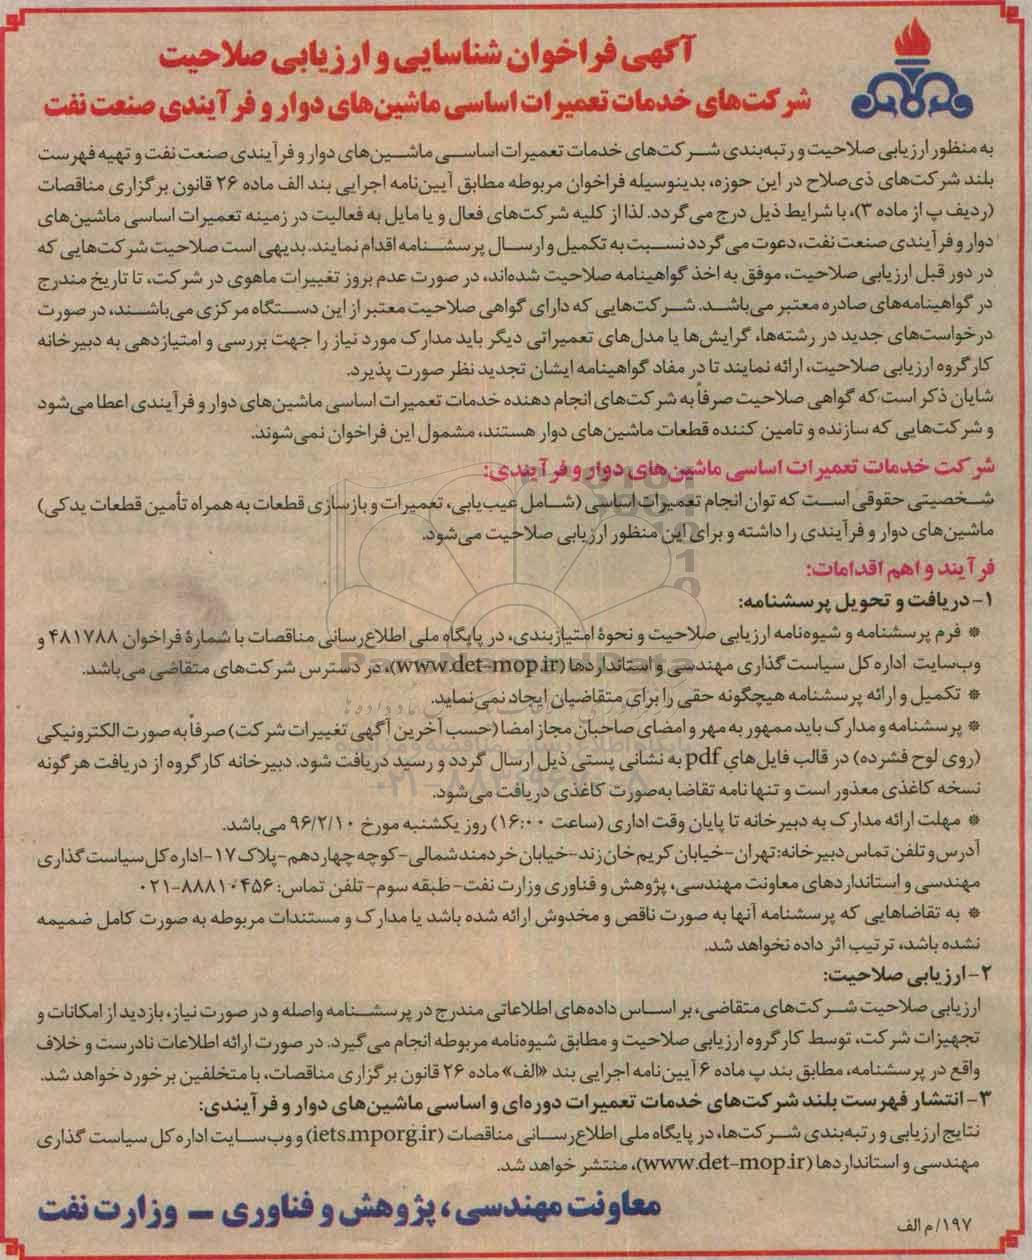 آگهی فراخوان شناسایی و ارزیابی صلاحیت
شرکت‌های خدمات تعمیرات اساسی ماشین‌های دوار و فرآیندی صنعت نفت
به منظور ارزیابی صلاحیت و رتبه‌بندی شرکت‌های خدمات تعمیرات اساسی ماشین‌های دوار و فرآیندی صنعت نفت و تهیه فهرست
بلند شرکت‌های ذی‌صلاح در این حوزه، بدینوسیله فراخوان مربوطه مطابق آیین‌نامه اجرایی بند الف ماده ۲۶ قانون برگزاری مناقصات
(ردیف پ از ماده ۳)، با شرایط ذیل درج می‌گردد. لذا از کلیه شرکت‌های فعال و یا مایل به فعالیت در زمینه تعمیرات اساسی ماشین‌های
دوار و فرآیندی صنعت نفت، دعوت می‌گردد نسبت به تکمیل و ارسال پرسشنامه اقدام نمایند. بدیهی است صلاحیت شرکت‌هایی که
در دور قبل ارزیابی صلاحیت، موفق به اخذ گواهینامه صلاحیت شده‌اند، در صورت عدم بروز تغییرات ماهوی در شرکت، تا تاریخ مندرج
در گواهینامه‌های صادره معتبر می‌باشد. شرکت‌هایی که دارای گواهی صلاحیت معتبر از این دستگاه مرکزی می‌باشند، در صورت
درخواست‌های جدید در رشته‌ها، گرایش‌ها یا مدل‌های تعمیراتی دیگر باید مدارک مورد نیاز را جهت بررسی و امتیازدهی به دبیرخانه
کارگروه ارزیابی صلاحیت، ارائه نمایند تا در مفاد گواهینامه ایشان تجدید نظر صورت پذیرد.
شایان ذکر است که گواهی صلاحیت صرفاً به شرکت‌های انجام دهنده خدمات تعمیرات اساسی ماشین‌های دوار و فرآیندی اعطا می‌شود
و شرکت‌هایی که سازنده و تامین کننده قطعات ماشین‌های دوار هستند، مشمول این فراخوان نمی‌شوند.
شرکت خدمات تعمیرات اساسی ماشین‌های دوار و فرآیندی:
شخصیتی حقوقی است که توان انجام تعمیرات اساسی (شامل عیب‌یابی، تعمیرات و بازسازی قطعات به همراه تأمین قطعات یدکی)
ماشین‌های دوار و فرآیندی را داشته و برای این منظور ارزیابی صلاحیت می‌شود.
فرآیند و اهم اقدامات:
۱- دریافت و تحویل پرسشنامه:
* فرم پرسشنامه و شیوه‌نامه ارزیابی صلاحیت و نحوهٔ امتیازبندی، در پایگاه ملی اطلاع‌رسانی مناقصات با شمارهٔ فراخوان ۴۸۱۷۸۸ و
وب‌سایت اداره کل سیاست گذاری مهندسی و استانداردها (www.det-mop.ir)، در دسترس شرکت‌های متقاضی می‌باشد.
* تکمیل و ارائه پرسشنامه هیچگونه حقی را برای متقاضیان ایجاد نمی‌نماید.
* پرسشنامه و مدارک باید ممهور به مهر و امضای صاحبان مجاز امضا (حسب آخرین آگهی تغییرات شرکت) صرفاً به صورت الکترونیکی
(روی لوح فشرده) در قالب فایل‌های pdf به نشانی پستی ذیل ارسال گردد و رسید دریافت شود. دبیرخانه کارگروه از دریافت هرگونه
نسخه کاغذی معذور است و تنها نامه تقاضا به‌صورت کاغذی دریافت می‌شود.
* مهلت ارائه مدارک به دبیرخانه تا پایان وقت اداری (ساعت ۱۶:۰۰) روز یکشنبه مورخ ۹۶/۲/۱۰ می‌باشد.
آدرس و تلفن تماس دبیرخانه: تهران-خیابان کریم‌خان زند-خیابان خردمند شمالی-کوچه چهاردهم-پلاک ۱۷-اداره کل سیاست گذاری
مهندسی و استانداردهای معاونت مهندسی، پژوهش و فناوری وزارت نفت- طبقه سوم- تلفن تماس: ۸۸۸۱۰۴۵۶-۰۲۱
* به تقاضاهایی که پرسشنامه آنها به صورت ناقص و مخدوش ارائه شده باشد یا مدارک و مستندات مربوطه به صورت کامل ضمیمه
نشده باشد، ترتیب اثر داده نخواهد شد.
۲- ارزیابی صلاحیت:
ارزیابی صلاحیت شرکت‌های متقاضی، بر اساس داده‌های اطلاعاتی مندرج در پرسشنامه واصله و در صورت نیاز، بازدید از امکانات و
تجهیزات شرکت، توسط کارگروه ارزیابی صلاحیت و مطابق شیوه‌نامه مربوطه انجام می‌گیرد. در صورت ارائه اطلاعات نادرست و خلاف
واقع در پرسشنامه، مطابق بند پ ماده ۶ آیین‌نامه اجرایی بند «الف» ماده ۲۶ قانون برگزاری مناقصات، با متخلفین برخورد خواهد شد.
۳- انتشار فهرست بلند شرکت‌های خدمات تعمیرات دوره‌ای و اساسی ماشین‌های دوار و فرآیندی:
نتایج ارزیابی و رتبه‌بندی شرکت‌ها، در پایگاه ملی اطلاع‌رسانی مناقصات (iets.mporg.ir) و وب‌سایت اداره کل سیاست گذاری
مهندسی و استانداردها (www.det-mop.ir)، منتشر خواهد شد.
معاونت مهندسی، پژوهش و فناوری – وزارت نفت
۱۹۷/م الف